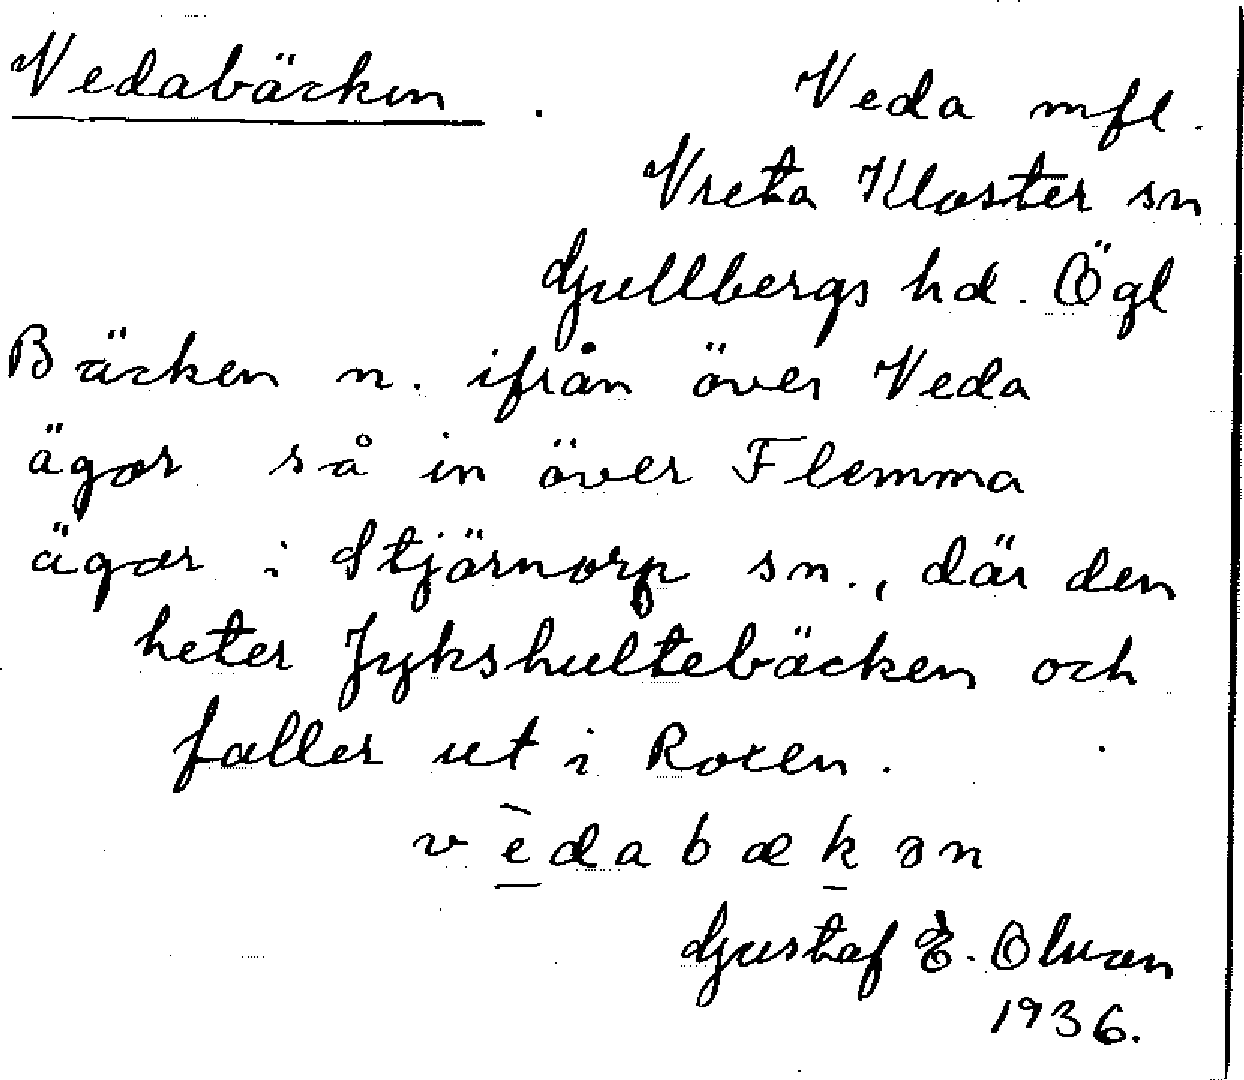 Vedabäcken. Veda mfl.
Vreta Kloster sn
Gullbergs hd. Ögl
Bäcken n. ifrån över Veda
ägor så in över Flemma
ägor i Stjärnorp sn., där den
heter Jykshultebäcken och
faller ut i Roxen.
vèdabækən
Gustaf E. Olvan
1936.